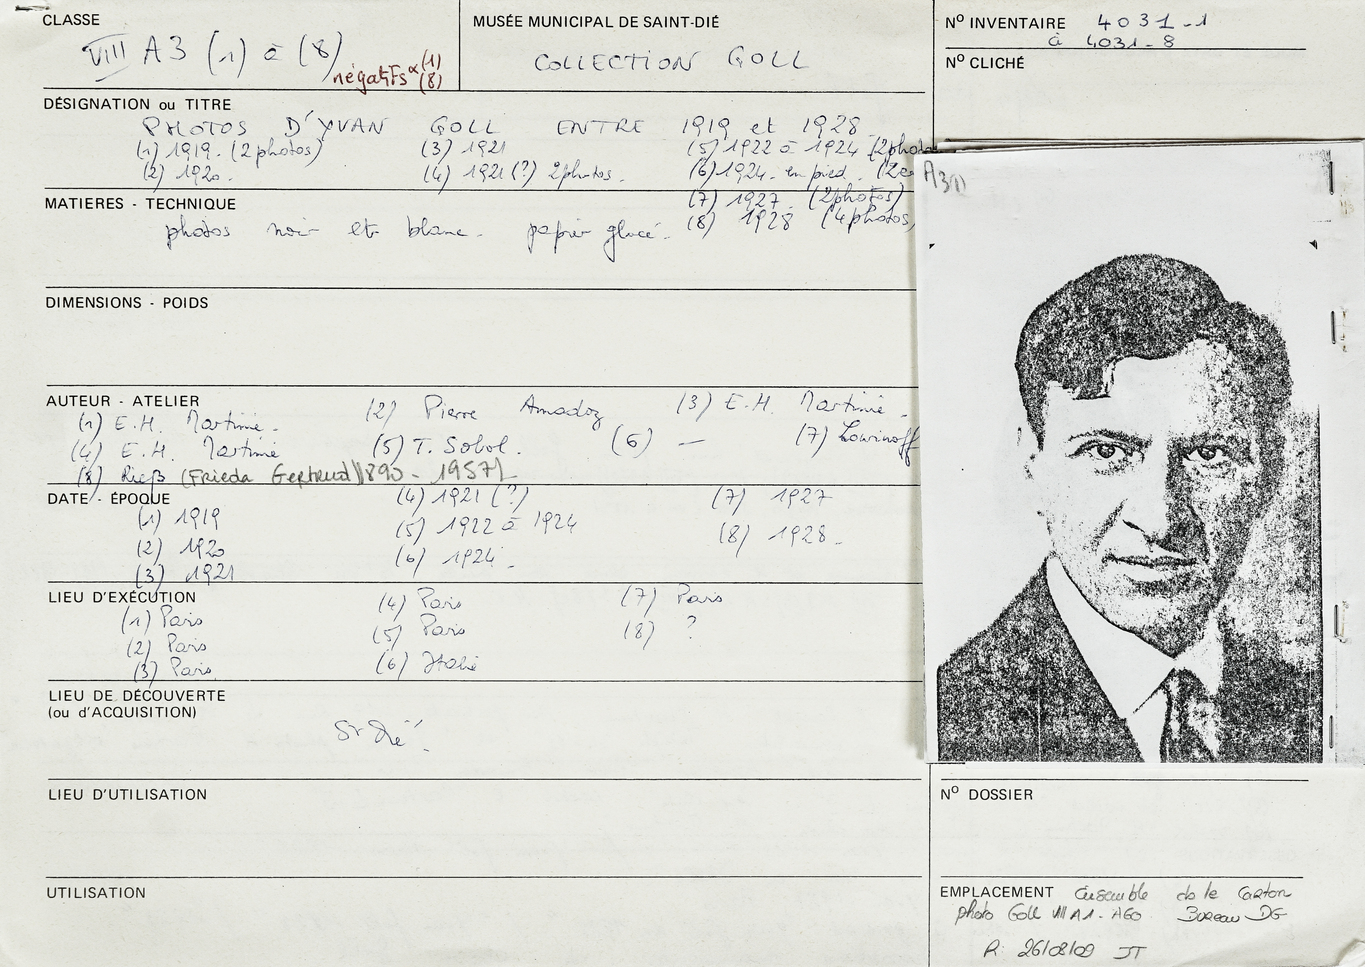 CLASSE
VIII A3 (1) à (8)
négatifs (1)
(8)
MUSÉE MUNICIPAL DE SAINT-DIÉ
COLLECTION GOLL
Nº INVENTAIRE 4031-1
à 4031-8
Nº CLICHÉ
DÉSIGNATION ou TITRE
PHOTOS D'YVAN GOLL ENTRE 1919 et 1928
(1) 1919. (2 photos) (3) 1921 (5) 1922 à 1924 (2 photos
(2) 1920. (4) 1921 (?) 2 photos. (6) 1924. en pied.
(7) 1927. (2 photos)
(8) 1928 (4 photos,
MATIERES - TECHNIQUE
photos noir et blanc. papier glacé.
A3(1)
DIMENSIONS - POIDS
AUTEUR - ATELIER
(1) E.H. Martinié. (2) Pierre (3) E.H. Martinié.
(4) E.H. Martinié (5) T. Sobol. (6) — (7) Lowinoff
(8) Rieß (Frieda Gertrud) 1890 - 1957)
DATE - ÉPOQUE
(1) 1919 (4) 1921 (?) (7) 1927
(2) 1920 (5) 1922 à 1924 (8) 1928.
(3) 1921 (6) 1924.
LIEU D'EXÉCUTION
(1) Paris (4) Paris (7) Paris
(2) Paris (5) Paris (8) ?
(3) Paris (6) Italie
LIEU DE DÉCOUVERTE
(ou d'ACQUISITION)
St Dié.
LIEU D'UTILISATION
Nº DOSSIER
UTILISATION
EMPLACEMENT Ensemble ds le Carton
photo Goll VIII A1 - A60 Bureau DG
R: 26/08/09 JT